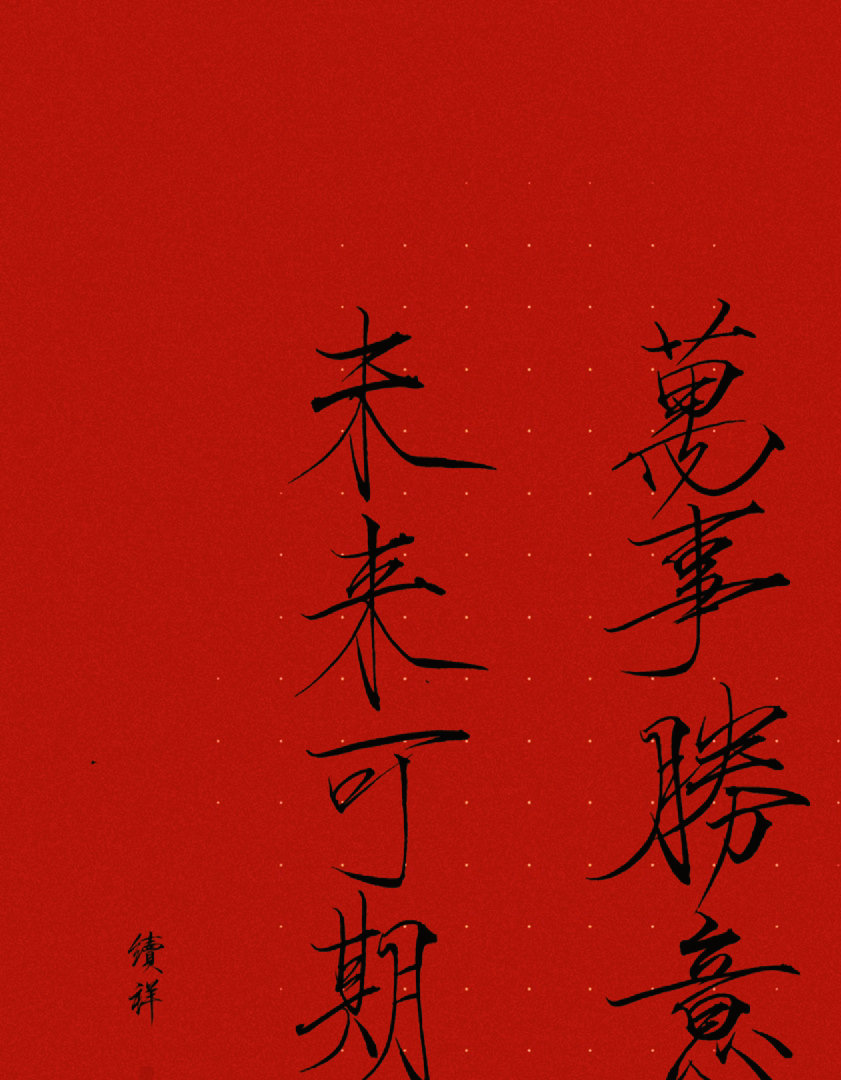 萬事勝意
未来可期
續祥